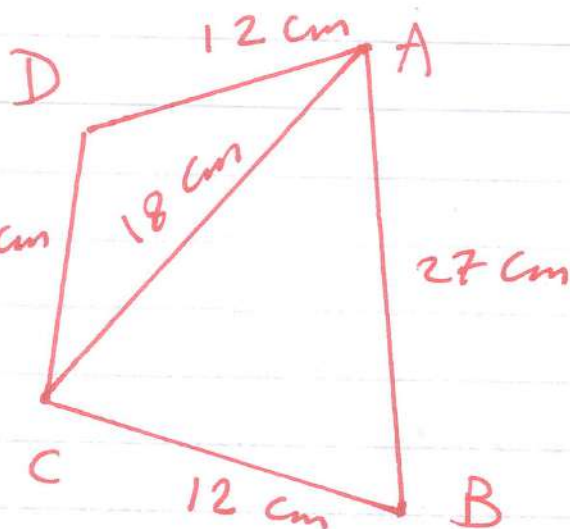 12 cm
A
D
18 cm
cm
27 cm
C
12 cm
B